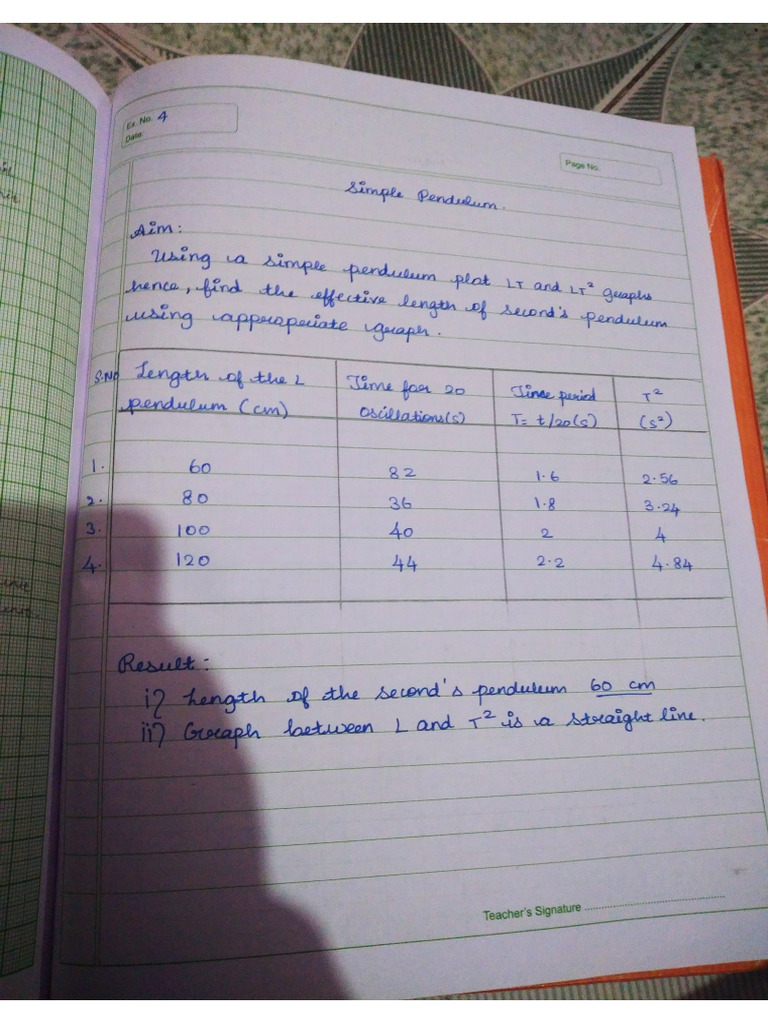 Ex. No. 4
Date:
Page No.
Simple Pendulum.
Aim:
Using a simple pendulum plot LT and LT² graphs
hence, find the effective length of second's pendulum
using appropriate graph.
S.NO Length of the L pendulum (cm) Time for 20 oscillations(s) Time period T= t/20(s) T² (s²)
1. 60 82 1.6 2.56
2. 80 36 1.8 3.24
3. 100 40 2 4
4. 120 44 2.2 4.84
Result:
i) Length of the second's pendulum 60 cm
ii) Graph between L and T² is a straight line.
Teacher's Signature